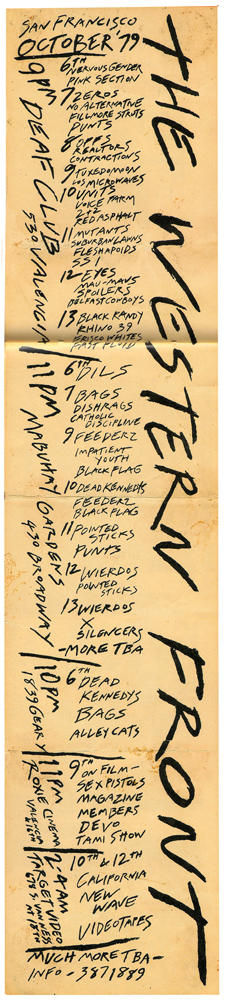 SAN FRANCISCO
OCTOBER '79
THE WESTERN FRONT
9PM
DEAF CLUB
530 VALENCIA
6TH
NERVOUS GENDER
PINK SECTION
7 ZEROS
NO ALTERNATIVE
FILLMORE STRUTS
PUNTS
8 OFFS
REALTORS
CONTRACTIONS
9 TUXEDOMOON
LOS MICROWAVES
10 UNITS
VOICE FARM
2+2
RED ASPHALT
11 MUTANTS
SUBURBAN LAWNS
FLESHAPOIDS
SSI
12 EYES
MAU-MAUS
SPOILERS
BELFAST COWBOYS
13 BLACK RANDY
RHINO 39
FRISCO WHITES
FAST FLOID
11PM
MABUHAY GARDENS
430 BROADWAY
6TH DILS
7 BAGS
DISHRAGS
CATHOLIC
DISCIPLINE
9 FEEDERZ
IMPATIENT
YOUTH
BLACK FLAG
10 DEAD KENNEDYS
FEEDERZ
BLACK FLAG
11 POINTED
STICKS
PUNTS
12 WIERDOS
POINTED
STICKS
13 WIERDOS
X
SILENCERS
-MORE TBA
10PM
1839 GEARY
6TH
DEAD
KENNEDYS
BAGS
ALLEYCATS
11PM
ROXIE CINEMA
VALENCIA
& 16TH
9TH
ON FILM-
SEX PISTOLS
MAGAZINE
MEMBERS
DEVO
TAMI SHOW
2-4AM
TARGET VIDEO
678 S. VAN NESS
AT 18TH
10TH & 12TH
CALIFORNIA
NEW
WAVE
VIDEOTAPES
MUCH MORE TBA-
INFO - 3871889